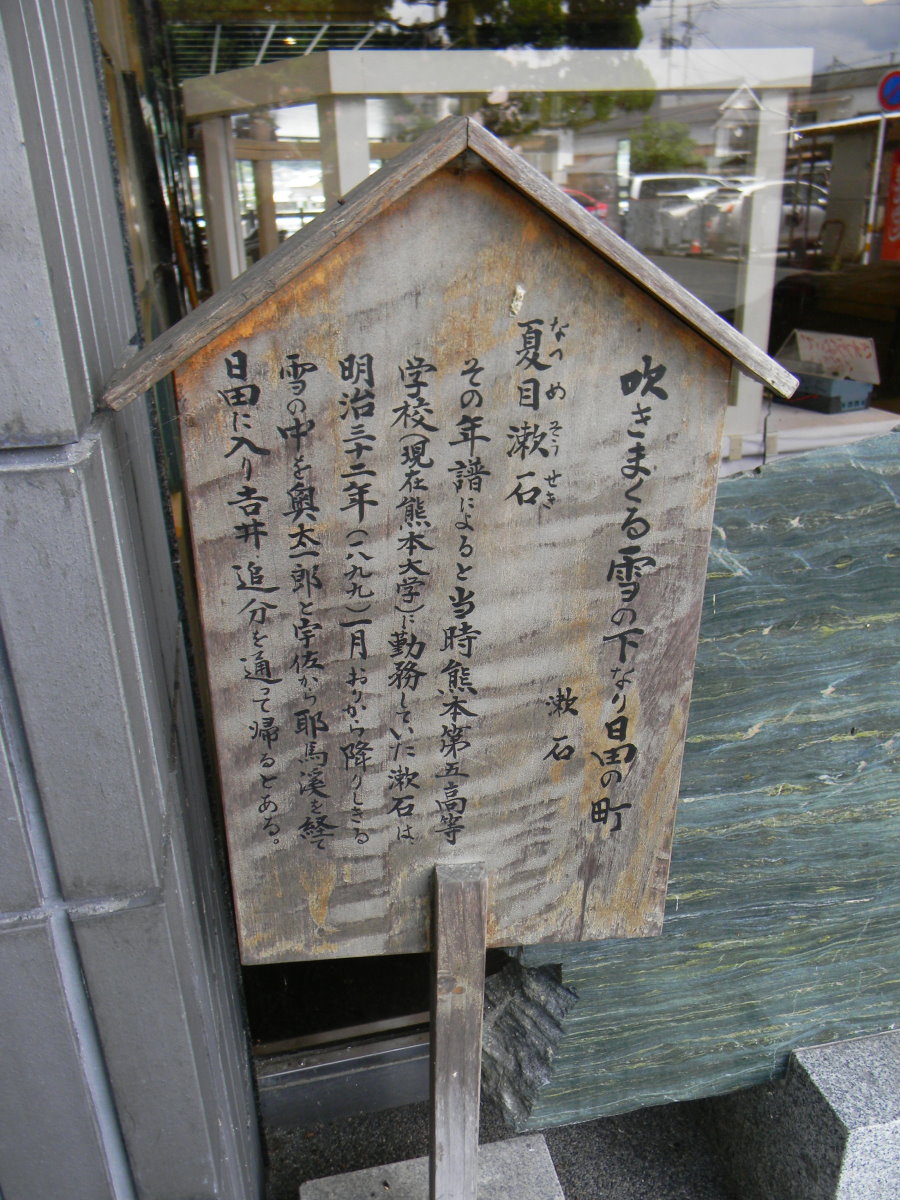 吹きまくる雪の下なり日田の町
漱石
なつめ そうせき
夏目漱石
その年譜によると当時熊本第五高等
学校(現在熊本大学)に勤務していた漱石は、
明治三十二年(一八九九)一月おりから降りしきる
雪の中を奥太一郎と宇佐から耶馬溪を経て
日田に入り吉井追分を通って帰るとある。